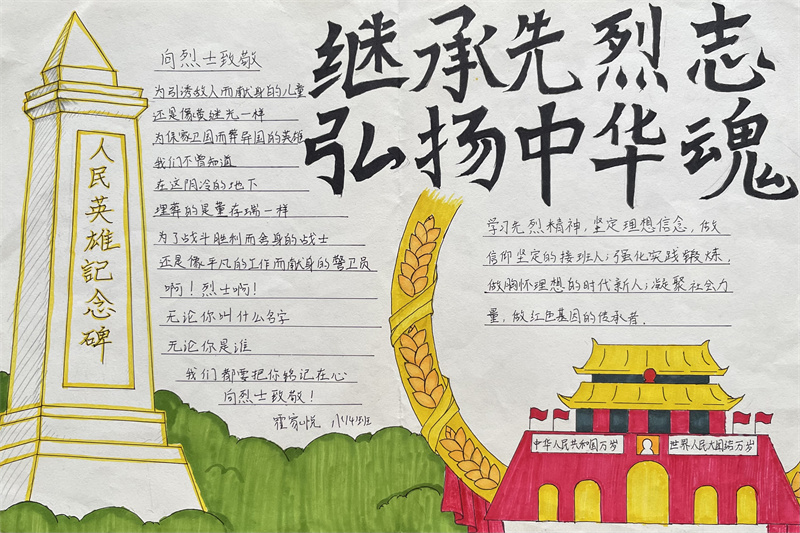 继承先烈志
弘扬中华魂
人民英雄記念碑
向烈士致敬
为引诱敌人而献身的儿童
还是像黄继光一样
为保家卫国而葬异国的英雄
我们不曾知道
在这阴冷的地下
埋葬的是董存瑞一样
为了战斗胜利而舍身的战士
还是像平凡的工作而献身的警卫员
啊！烈士啊！
无论你叫什么名字
无论你是谁
我们都要把你铭记在心
向烈士致敬！
学习先烈精神，坚定理想信念，做
信仰坚定的接班人；强化实践锻炼，
做胸怀理想的时代新人；凝聚社会力
量，做红色基因的传承者。
中华人民共和国万岁
世界人民大团结万岁